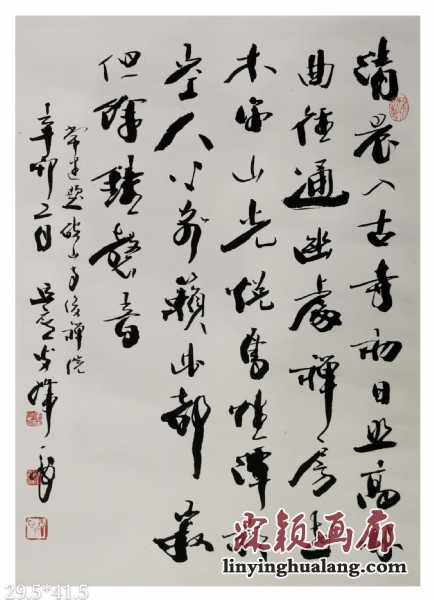 清晨入古寺初日照高林
曲徑通幽處禪房花
木深山光悅鳥性潭影
空人心萬籟此都寂
但餘鐘磬音
常建題破山寺後禪院
辛卯二月
霖颖画廊
linyinghualang.com
29.5*41.5